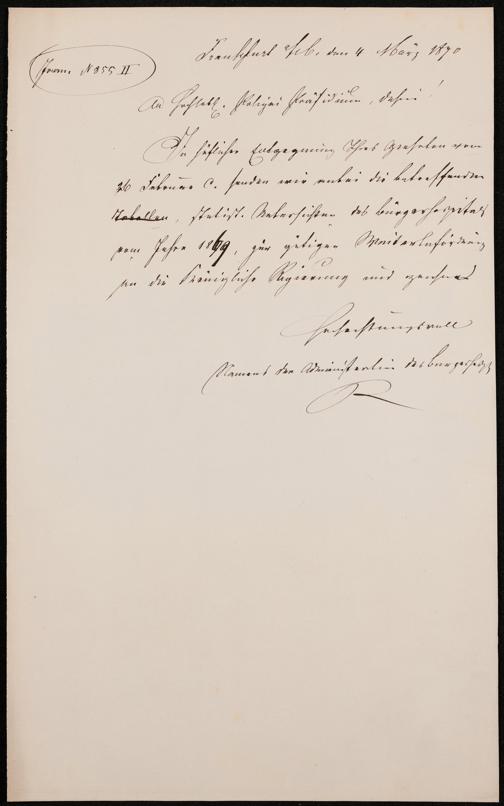 Frankfurt a/M. den 4 März 1870
Journ. N 355 II
An Hochlöbl. Polizei Präsidium, dahier!
In höflicher Entgegnung Ihres Geehrten vom
26 Februar c. senden wir anbei die betreffenden
Tabellen, statist. Uebersichten des Bürgerhospitals
vom Jahre 1869, zur gütigen Weiterbeförderung
an die Königliche Regierung und zeichnet
Hochachtungsvoll
Namens der Administration des Bürgerhospit